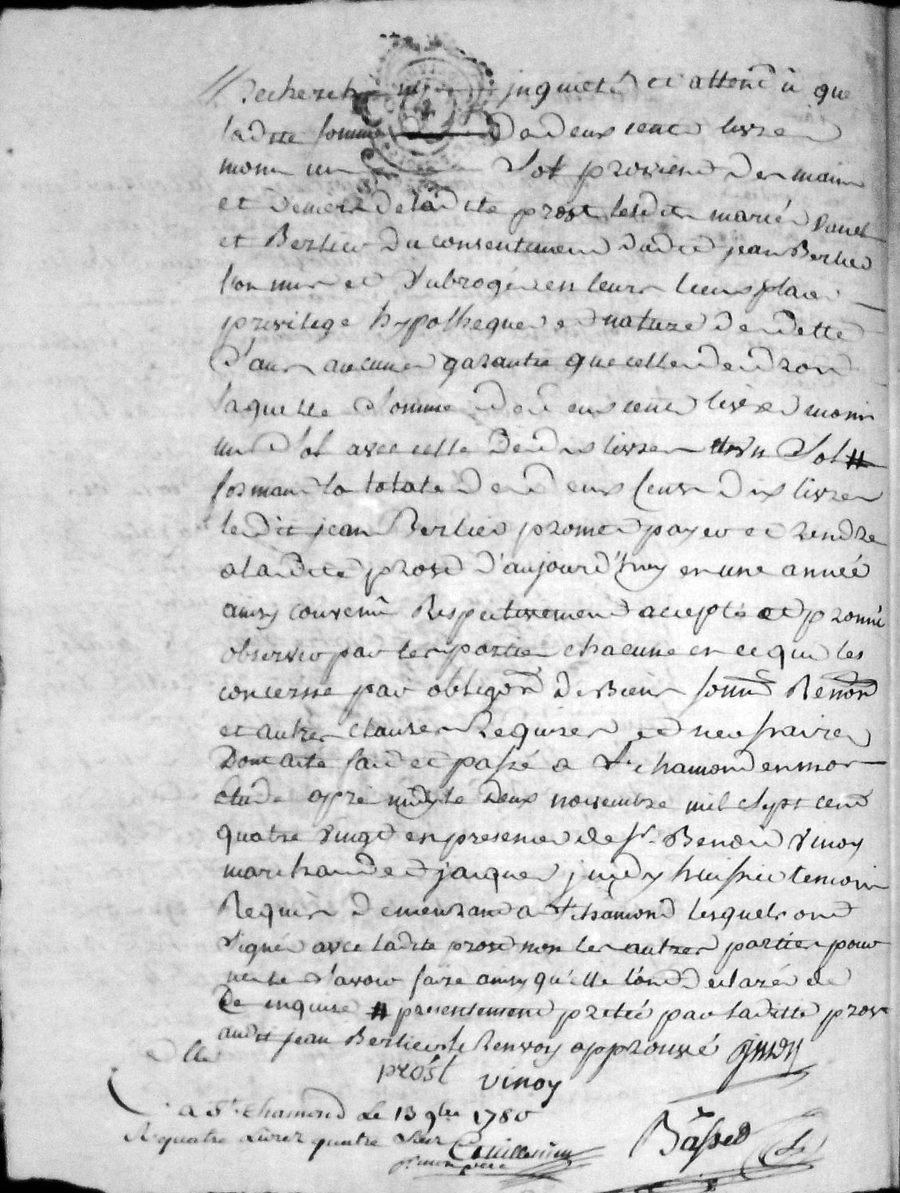 Recherché inquieté et attendu que
ladite somme de deux cent livres
moins un sol provient des mains
et deniers de ladite prost lesdits mariés vanel
et Berlier du consentement dudit jean Berlier
l'on mise et subrogée en leurs lieux place
privilege hypotheque et nature de dette
sans aucune garantie que celle de droit
laquelle somme de deux cent livres moins
un sol avec celle de dix livres un sol #
formant la totale de deux cents dix livres
ledit jean Berlier promet payer et rendre
a ladite prost d'aujourd'huy en une année
ainsy convenu Respectivement accepté et promis
observer par les parties chacune en ce que les
concerne par obligõn de Biens soum̃ Renõn
et autres clauses Requises et necessaires
Dont acte fait et passé a St chamond en mon
etude apres midy le deux novembre mil sept cent
quatre vingt en presence de sr. Benoit vinoy
marchand et jacques jujdy huissier temoins
Requis demeurant a St chamond lesquels ont
signé avec ladite prost non les autres parties pour
ne le savoir faire ainsy qu'elle l'ont declaré de
ce enquise # presentement prêtée par ladite prost
audit jean Berlier le Renvoy approuvé
prost vinoy
Cllé a St. chamond le 13 9bre 1780
R quatre Livres quatre sols